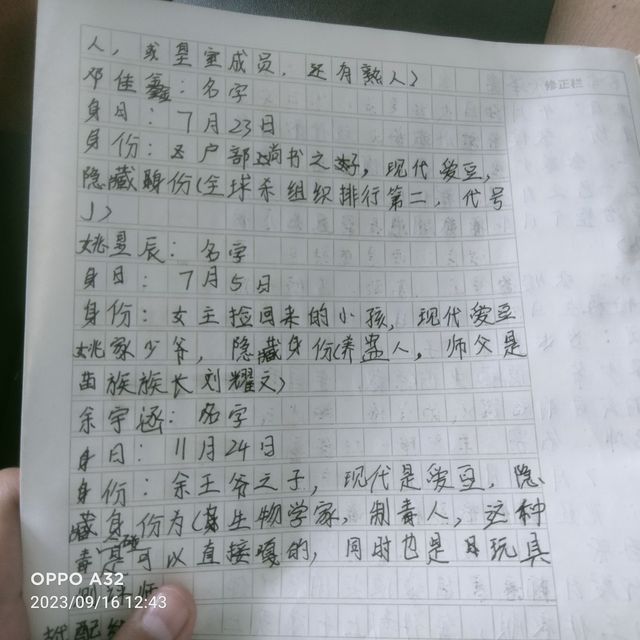 人，我皇室成员，还有熟人）
修正栏
邓佳鑫：名字
身日：7月23日
身份：户部尚书之好，现代爱豆，
隐藏身份（全球杀组织排行第二，代号
J）
姚昱辰：名字
身日：7月5日
身份：女主捡回来的小孩，现代爱豆
姚家少爷，隐藏身份（养蛊人，师父是
苗族族长刘耀文）
余宇涵：名字
身日：11月24日
身份：余王爷之子，现代是爱豆，隐
藏身份为（生物学家，制毒人，这种
毒可以直接嘎的，同时也是玩具
OPPO A32
2023/09/16 12:43